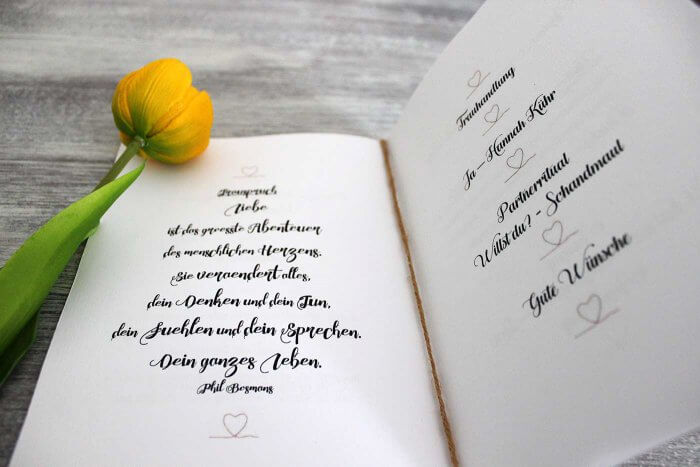 Trauspruch
Liebe
ist das groesste Abenteuer
des menschlichen Herzens.
Sie veraendert alles,
dein Denken und dein Tun,
dein Fuehlen und dein Sprechen.
Dein ganzes Leben.
Phil Bosmans
Trauhandlung
Ja – Hannah Kühr
Partnerritual
Willst du? - Schandmaul
Gute Wünsche